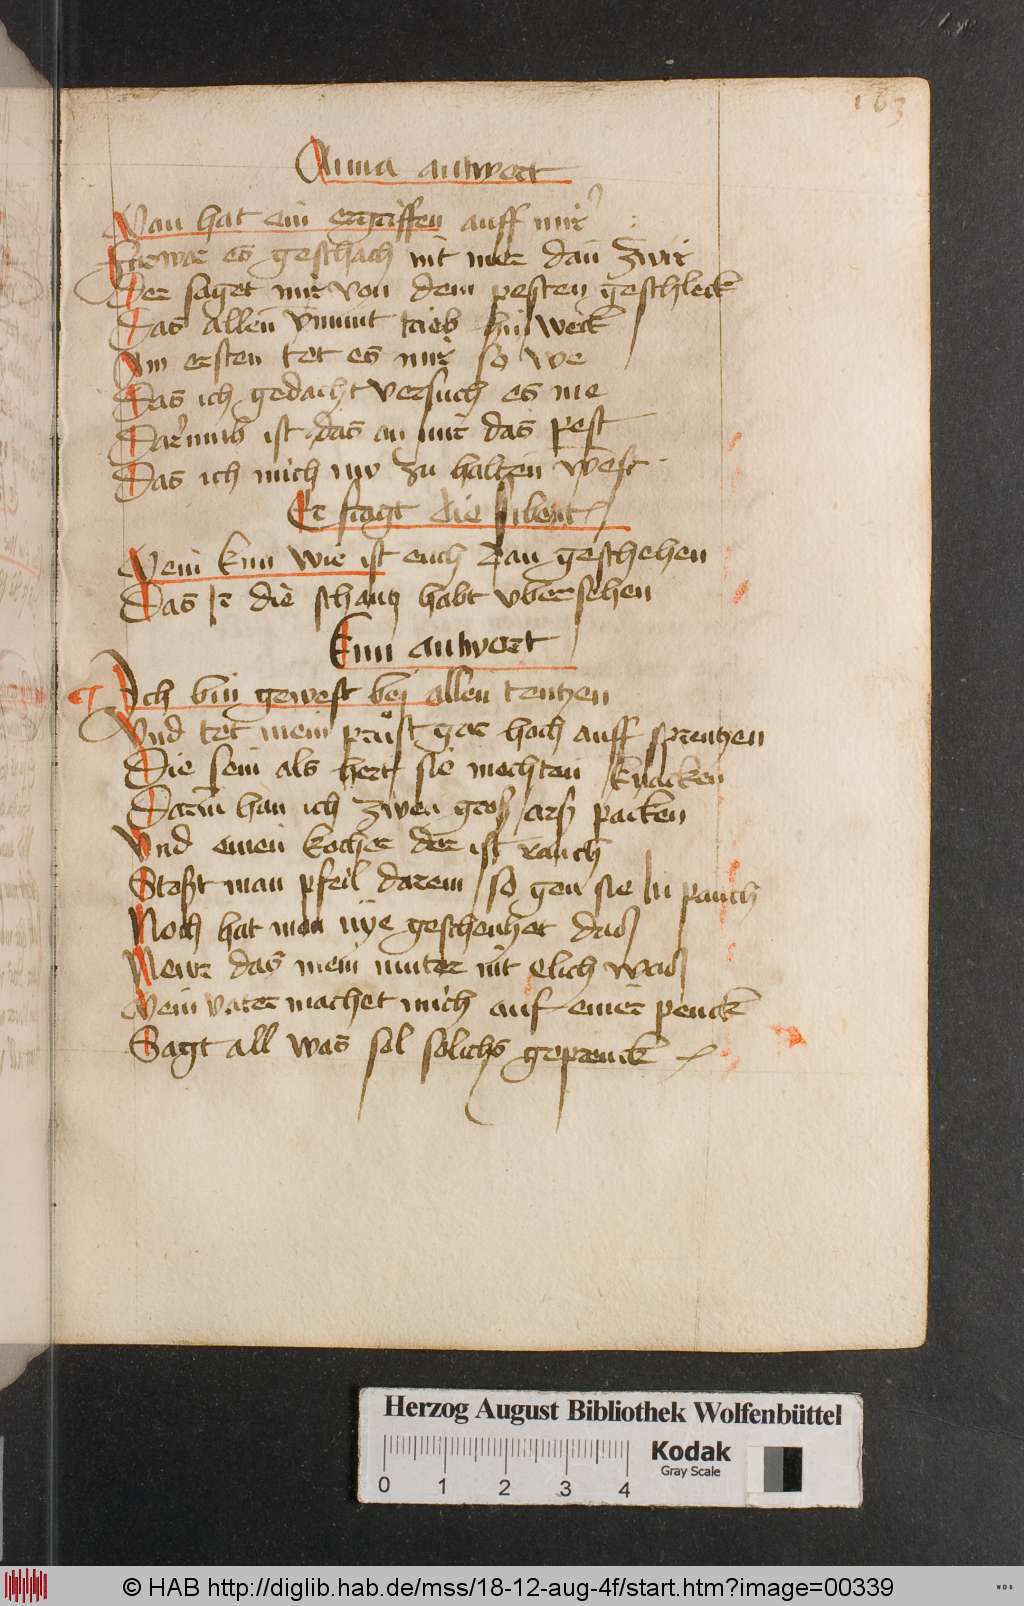 163
Anna antwort
Man hat ein ergriffen auff mir
Furwar es geschach nit mer dan zwir
Der saget mir von dem pesten geschleck
Das allen vnmut trieb hin weck
Am ersten tet es mir so we
Das ich gedacht versuch es me
Darumb ist das an mir das pest
Das ich mich nw zu halten west
Er fragt die sibent
Mein kun wie ist euch dan geschehen
Das Ir die schancz habt vbersehen
Kun antwort
Ich bin gewest bei allen tentzen
Vnd tet mein prust gar hoch auff sprentzen
Die sein als hert sie mochten knacken
Darin han ich zwen groß arß packen
Vnd einen kocher der ist rauch
Steßt man pfeil darein so gen sie In pauch
Noch hat man nye geschenhet das
Newr das mein muter nit elich was
Mein vater machet mich auf einer penck
Sagt all was sol solichs geprenck
Herzog August Bibliothek Wolfenbüttel
Kodak
Gray Scale
0 1 2 3 4
© HAB http://diglib.hab.de/mss/18-12-aug-4f/start.htm?image=00339